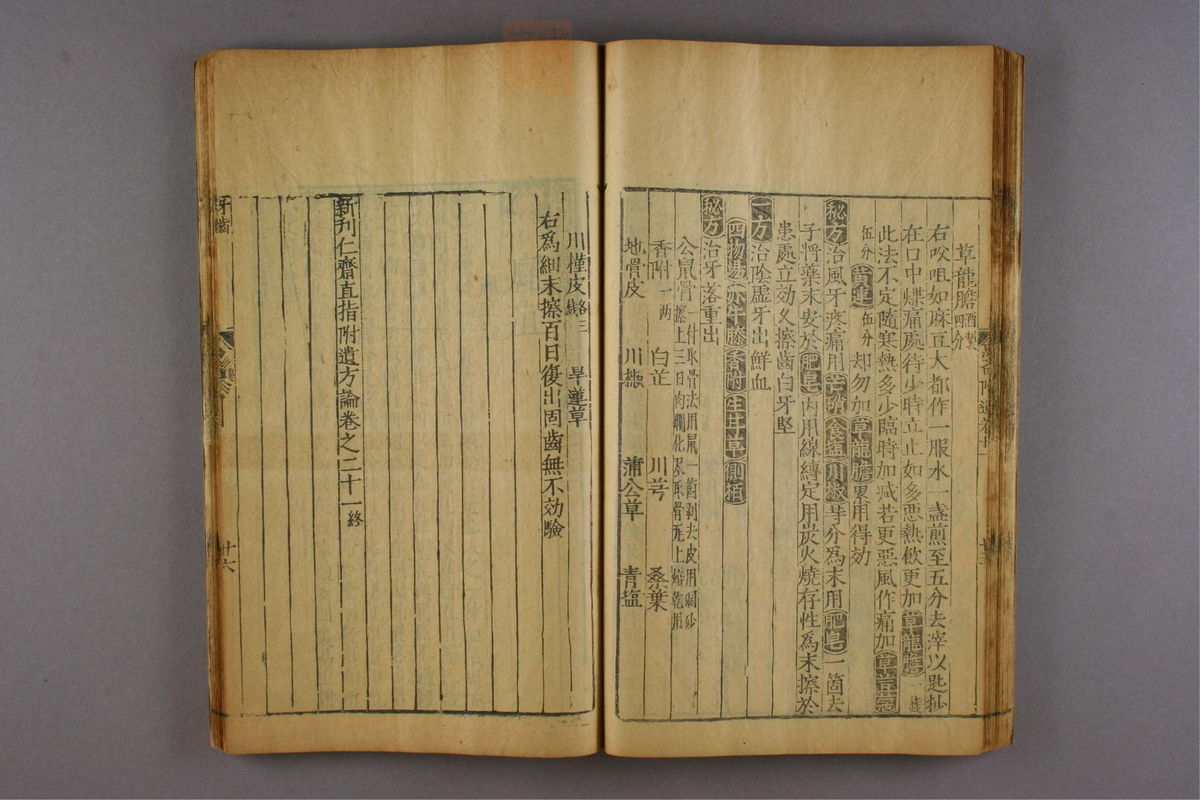 草龍膽酒製四分
右㕮咀如麻豆大都作一服水一盞煎至五分去滓以匙抄
在口中煠痛處待少時立止如多惡熱飲更加草龍膽一錢
此法不定隨寒熱多少臨時加减若更惡風作痛加草荳蔻
伍分黃連伍分却勿加草龍膽累用得効
秘方治風牙疼痛用芒硝食塩川椒等分爲末用肥皂一箇去
子將藥末安於肥皂內用線縛定用炭火燒存性爲末擦於
患處立効久擦齒白牙堅
一方治陰虛牙出鮮血
四物湯亦牛膝香附生甘草側栢
秘方治牙落重出
公鼠骨一付取骨法用鼠一箇剥去皮用硇砂
擦上三日肉爛化尽取骨瓦上焙乾用
香附一两 白芷 川芎 桑葉
地骨皮 川椒 蒲公草 青塩
川槿皮各三錢 旱蓮草
右爲細末擦百日復出固齒無不効驗
新刋仁齋直指附遺方論卷之二十一終
牙齒
廿六